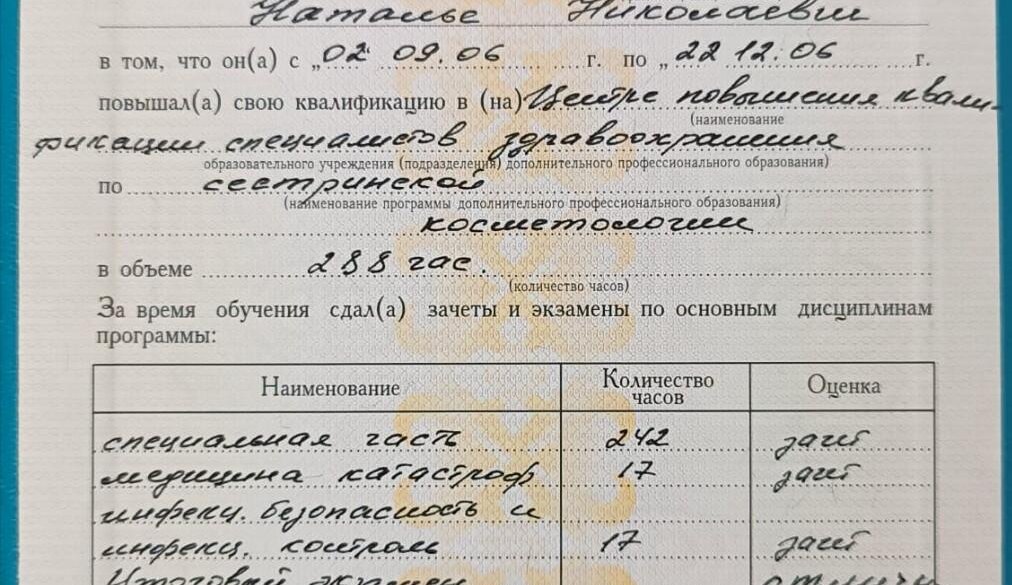 Наталье Николаевне
в том, что он(а) с „02" 09.06 г. по „22 12.06 г.
повышал(а) свою квалификацию в (на) Центре повышения квали-
(наименование
фикации специалистов здравоохранения
образовательного учреждения (подразделения) дополнительного профессионального образования)
по сестринской
(наименование программы дополнительного профессионального образования)
косметологии
в объеме 288 час.
(количество часов)
За время обучения сдал(а) зачеты и экзамены по основным дисциплинам
программы:
Наименование Количество часов Оценка
специальная часть 242 зачёт
медицина катастроф 17 зачёт
инфекц. безопасность и
инфекц. контроль 17 зачёт
Итоговый экзамен отлично